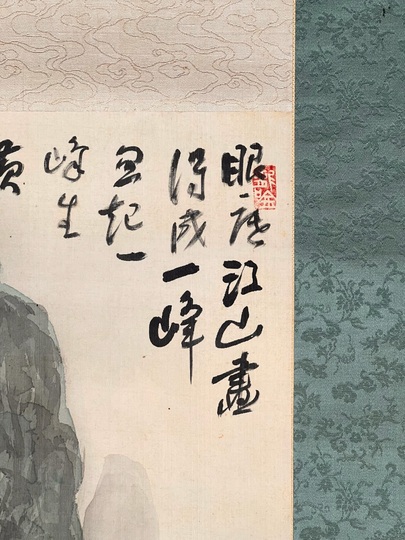 眼底江山畫
得成一峰
忽起一
峰生
黄